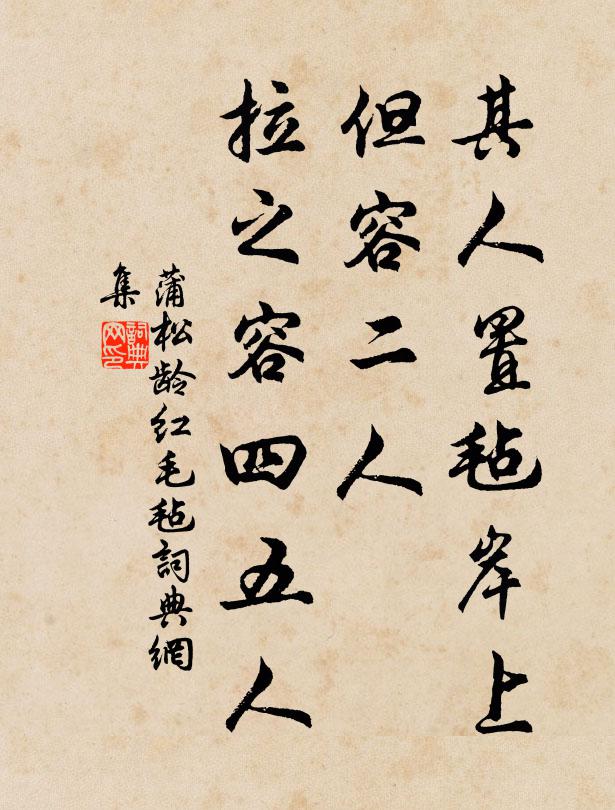 其人置毡岸上
但容二人
拉之容四五人
蒲松龄红毛毡詞典網
集
詞典
网印